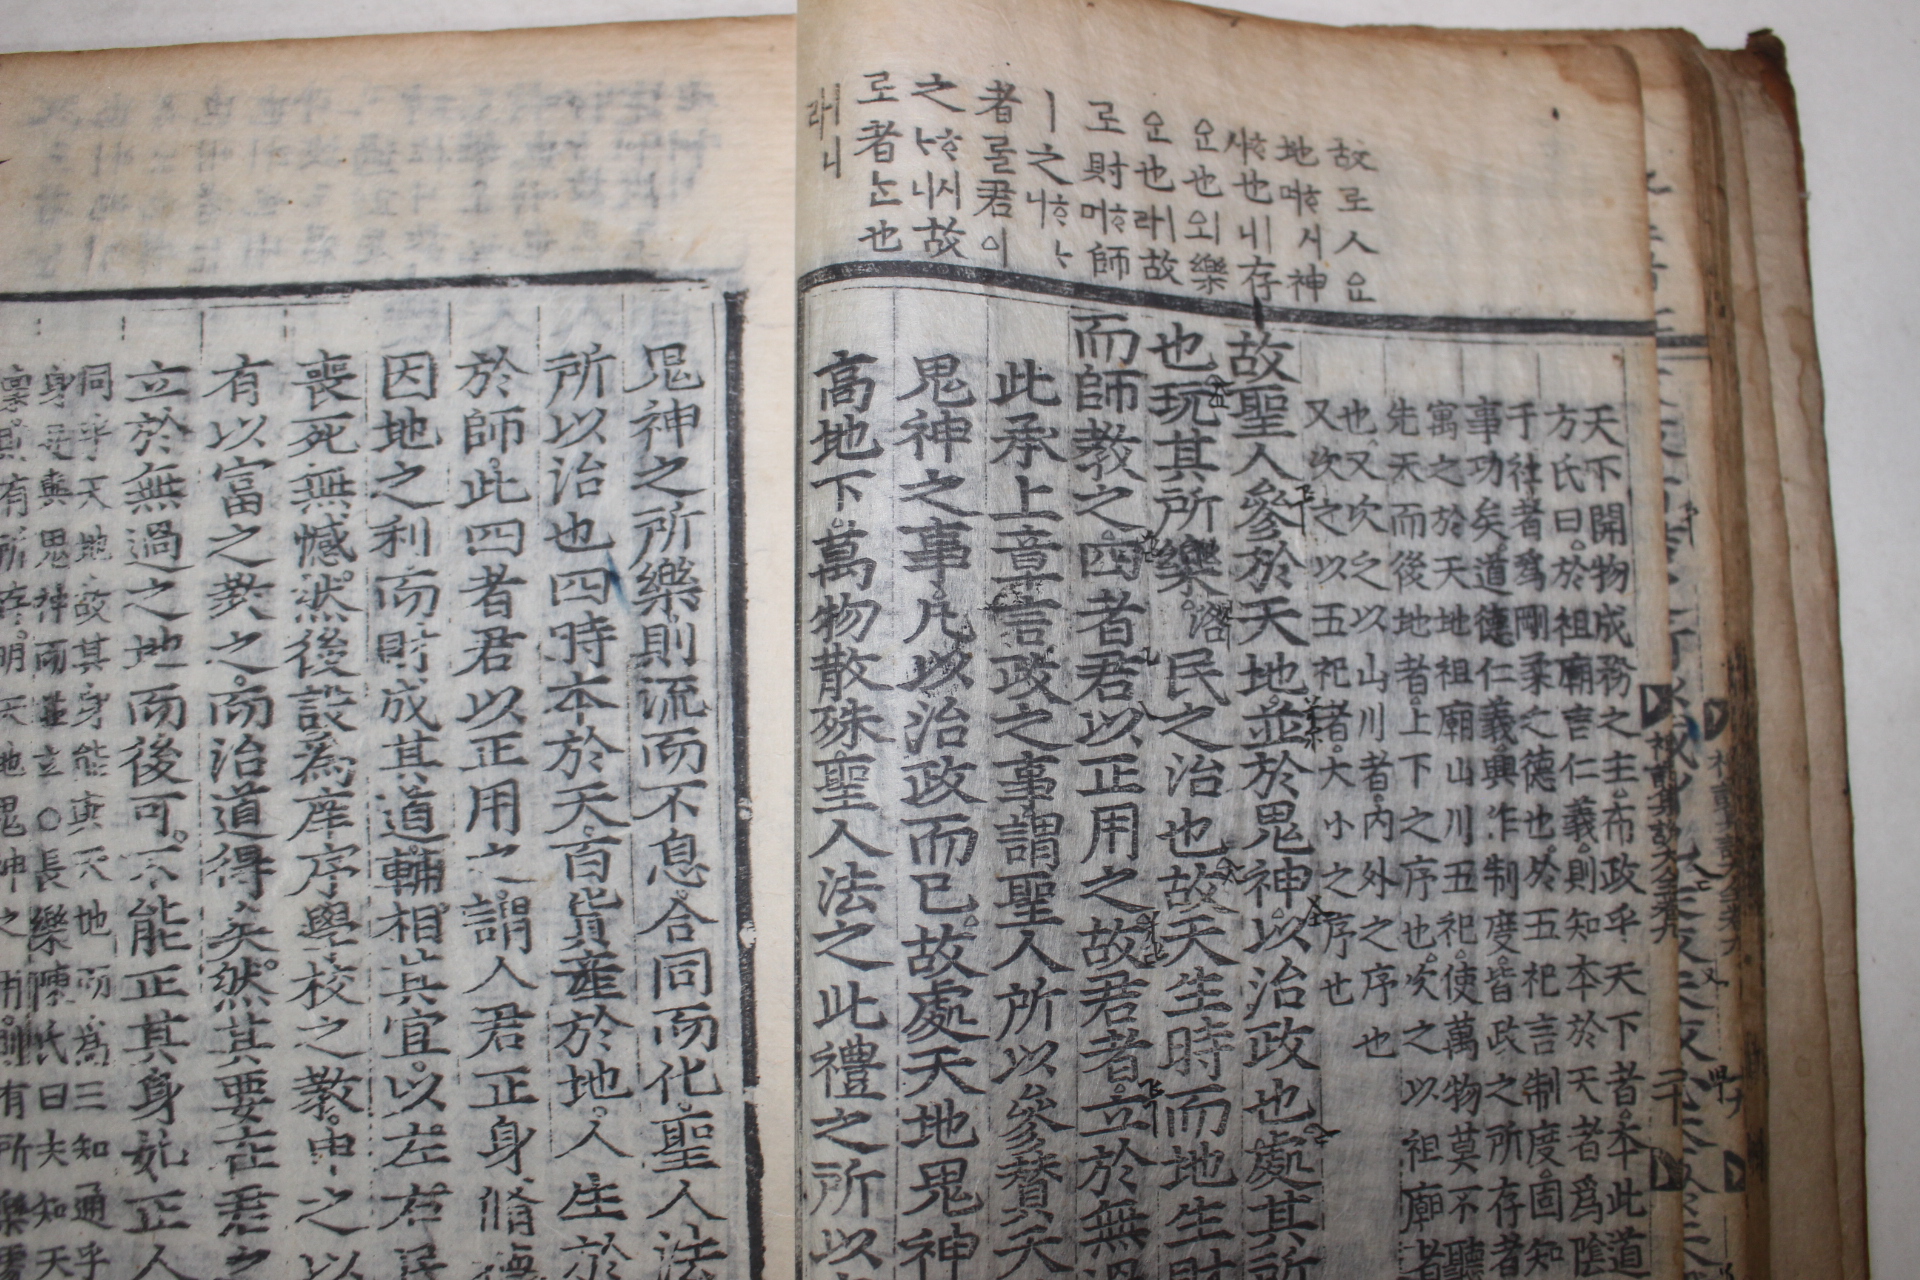 故로人요
地며ᄒᆞ시神
샤ᄒᆞ也ㅣ네存
온也외樂
온也ㅣ라故
로財며ᄒᆞ師
ㅣ之니ᄒᆞᄂᆞ
者를君이
之ᄂᆞᄒᆞ니시故
로者ᄂᆞᆫ也
ㅣ라니
天下開物成務之主布政乎天下者本此道
方氏曰於祖廟言仁義則知本於天者爲陰
于社者爲剛柔之德也於五祀言制度固知
事功矣道德仁義興作制度皆政之所存者
寓之於天地祖廟山川五祀使萬物莫不聽
先天而後地者上下之序也次之以祖廟者
也又次之以山川者內外之序也
又次之以五祀者大小之序也
故聖人參於天地並於鬼神以治政也處其所
也玩其所樂洛民之治也故天生時而地生財
而師敎之四者君以正用之故君者立於無過
此承上章言政之事謂聖人所以參贊天
鬼神之事凡以治政而已故處天地鬼神
高地下萬物散殊聖人法之此禮之所以
禮記集說大全卷九
二十
鬼神之所樂則流而不息合同而化聖人法
所以治也四時本於天百貨產於地人生於
於師此四者君以正用之謂人君正身脩德
因地之利而財成其道輔相其宜以左右民
喪死無憾然後設爲庠序學校之敎申之以
有以富之敎之而治道得矣然其要在君之
立於無過之地而後可不能正其身如正人
同乎天地故其身能與天地而爲三知通乎
身與鬼神而並立○長樂陳氏曰夫知天
有所存明天地鬼神之用則有所樂